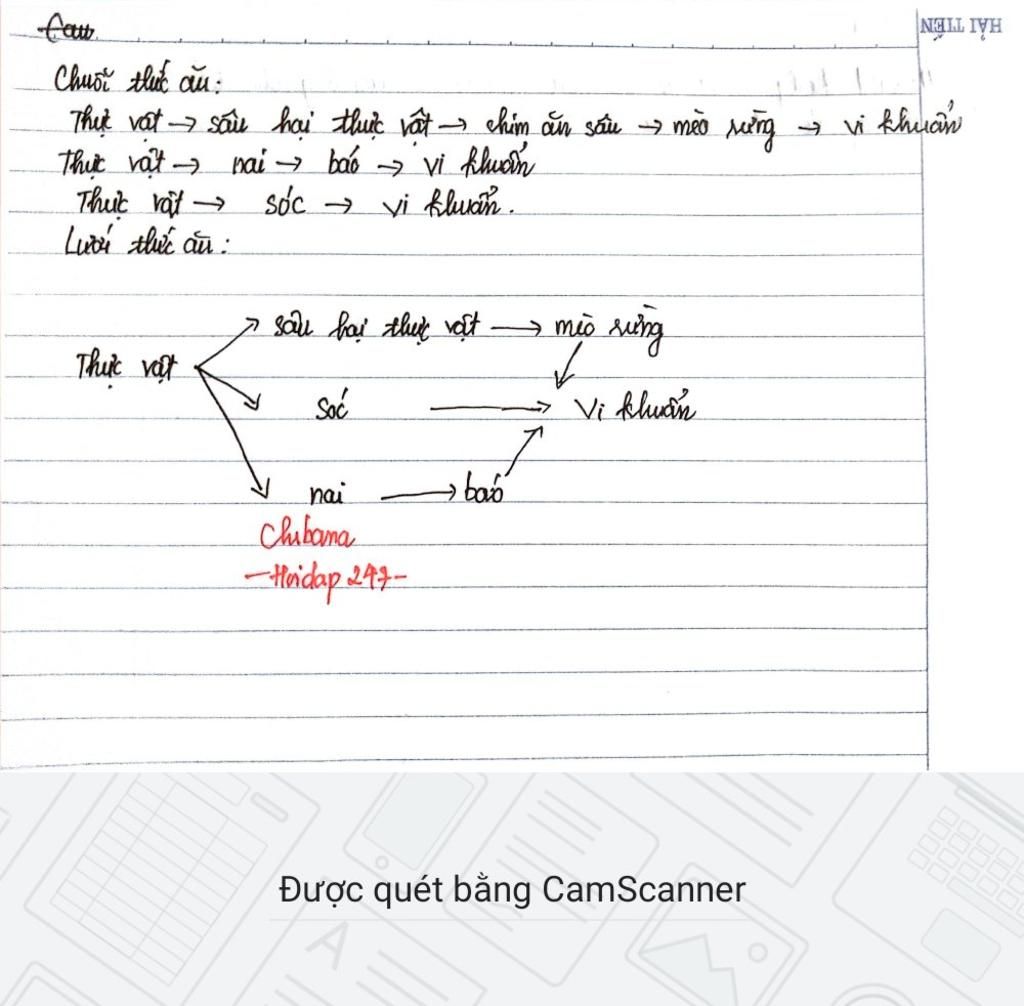 HẢI TIẾN
Câu
Chuỗi thức ăn:
Thực vật → sâu hại thực vật → chim ăn sâu → mèo rừng → vi khuẩn
Thực vật → nai → báo → vi khuẩn
Thực vật → sóc → vi khuẩn.
Lưới thức ăn:
sâu hại thực vật → mèo rừng
Thực vật
sóc → Vi khuẩn
nai → báo
Chibana
-Hoidap 247-
Được quét bằng CamScanner